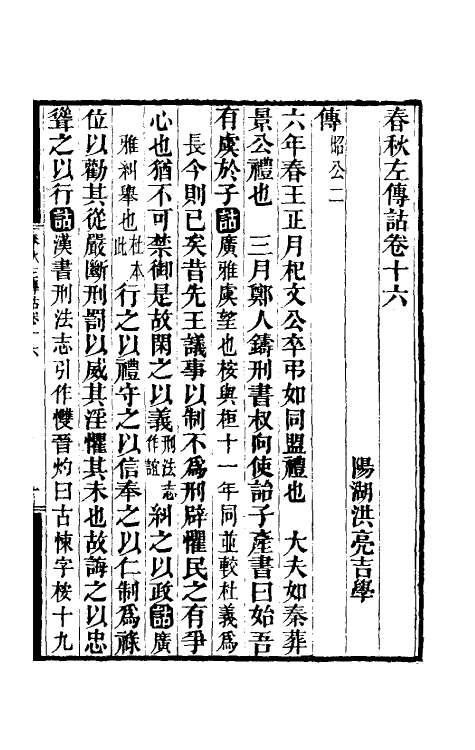 春秋左傳詁卷十六
陽湖洪亮吉學
傳昭公二
六年春王正月杞文公卒弔如同盟禮也　大夫如秦葬
景公禮也　三月鄭人鑄刑書叔向使詒子產書曰始吾
有虞於子詁廣雅虞望也桉與桓十一年同並較杜義爲
長今則已矣昔先王議事以制不爲刑辟懼民之有爭
心也猶不可禁御是故閑之以義刑法志作誼糾之以政詁廣
雅糾舉也杜本此行之以禮守之以信奉之以仁制爲祿
位以勸其從嚴斷刑罰以威其淫懼其未也故誨之以忠
聳之以行詁漢書刑法志引作㩳晉灼曰古悚字桉十九